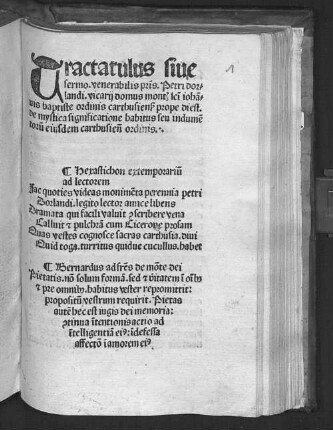 1
Tractatulus siue
sermo. venerabilis pris. Petri dor-
landi. vicarij domus montꝭ scī iohā-
nis baptiste ordinis carthusiensꝭ prope diest.
de mystica significatione habitus seu indumē
torū eiusdem carthusieñ ordinis.
¶ Hexastichon extemporariū
ad lectorem
Hac quoties videas monimēta perennia petri
Dorlandi. legito lector amice libens
Dramata qui facili valuit pscribere vena
Calluit & pulchrā cum Cicerone prosam
Quas vestes cognosce sacras carthusia. diui
Quid toga. turritus quidue cucullus. habet
¶ Bernardus ad frēs de mōte dei
Pietatis. nō solum formā. sed & vitatem ī oīb
& pre omnib. habitus vester repromittit:
propositū vestrum requirit. Pietas
autē hec est iugis dei memoria:
ptinua ītentionis actio ad
ītelligentiā eiꝰ: idefessa
affectō ī amorem eiꝰ